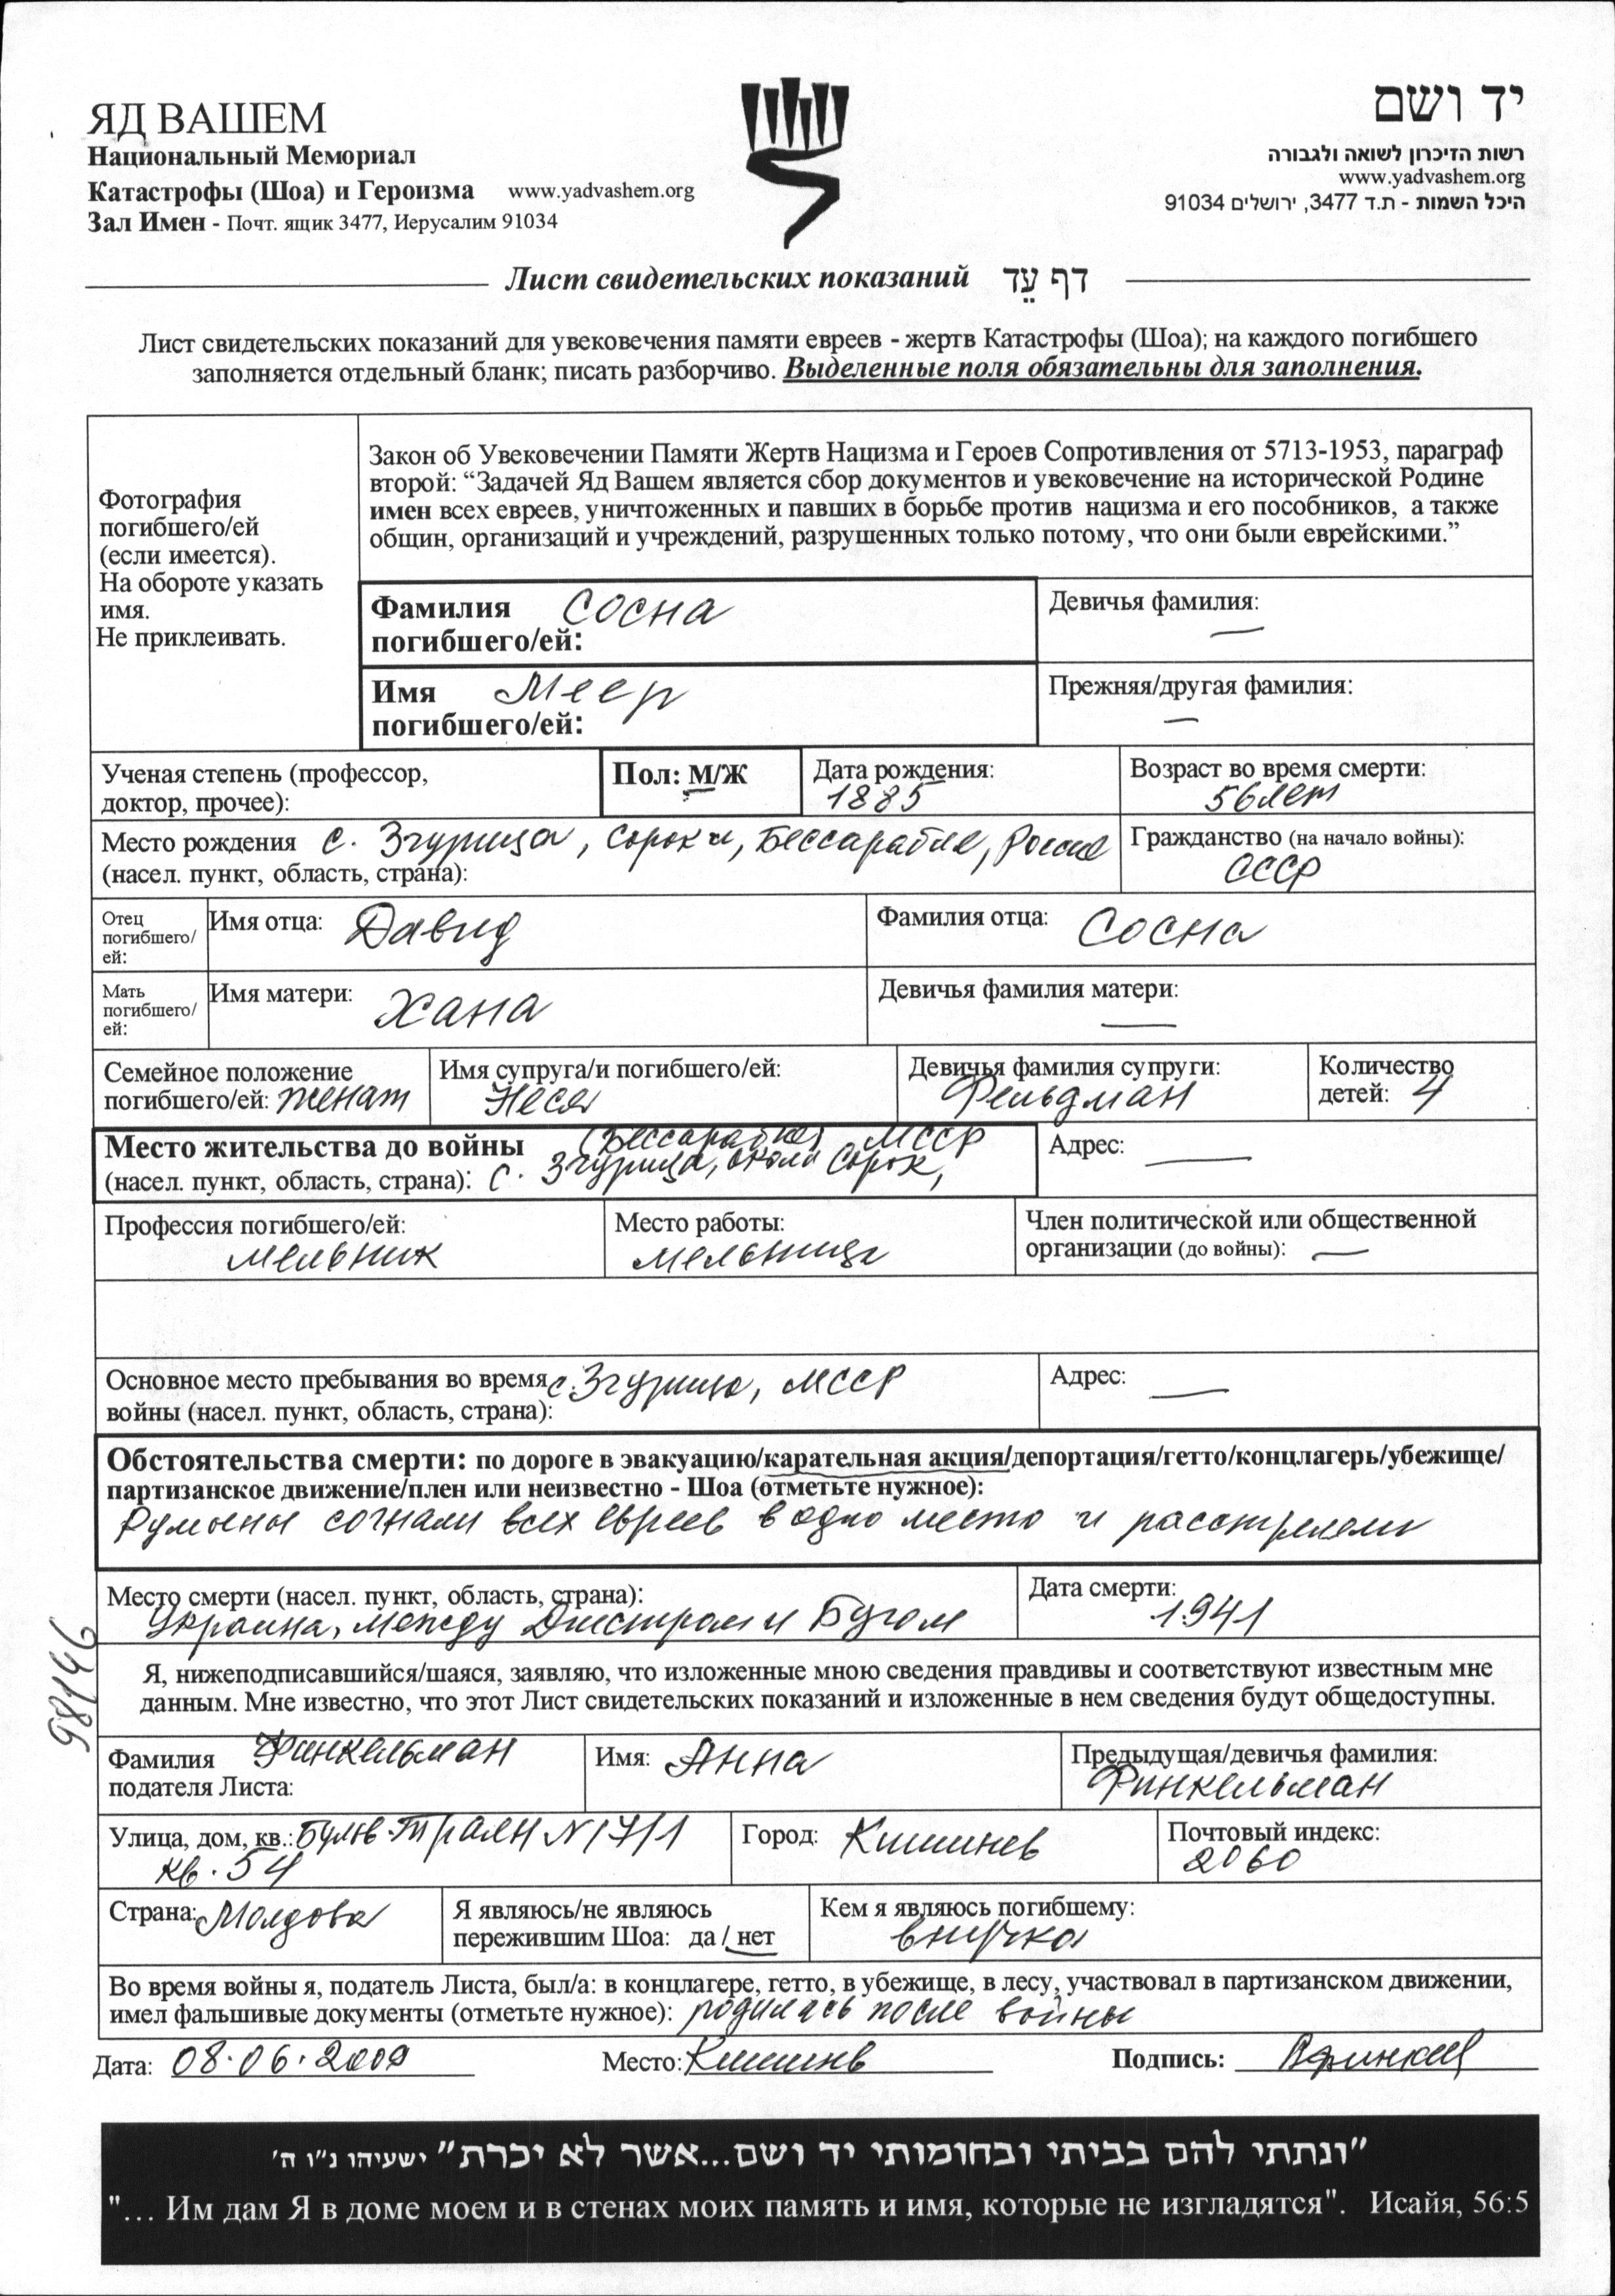 ЯД ВАШЕМ
Национальный Мемориал
Катастрофы (Шоа) и Героизма www.yadvashem.org
Зал Имен - Почт. ящик 3477, Иерусалим 91034
יד ושם
רשות הזיכרון לשואה ולגבורה
www.yadvashem.org
היכל השמות - ת.ד 3477, ירושלים 91034
Лист свидетельских показаний דף עֵד
Лист свидетельских показаний для увековечения памяти евреев - жертв Катастрофы (Шоа); на каждого погибшего
заполняется отдельный бланк; писать разборчиво. Выделенные поля обязательны для заполнения.
Фотография
погибшего/ей
(если имеется).
На обороте указать
имя.
Не приклеивать.
Закон об Увековечении Памяти Жертв Нацизма и Героев Сопротивления от 5713-1953, параграф
второй: “Задачей Яд Вашем является сбор документов и увековечение на исторической Родине
имен всех евреев, уничтоженных и павших в борьбе против нацизма и его пособников, а также
общин, организаций и учреждений, разрушенных только потому, что они были еврейскими.”
Фамилия Сосна
погибшего/ей:
Девичья фамилия:
—
Имя Меер
погибшего/ей:
Прежняя/другая фамилия:
—
Ученая степень (профессор,
доктор, прочее):
Пол: М/Ж
Дата рождения:
1885
Возраст во время смерти:
56 лет
Место рождения с. Згурица, Сороки, Бессарабия, Россия
(насел. пункт, область, страна):
Гражданство (на начало войны):
СССР
Отец
погибшего/
ей:
Имя отца: Давид
Фамилия отца: Сосна
Мать
погибшего/
ей:
Имя матери: Хана
Девичья фамилия матери:
—
Семейное положение
погибшего/ей: женат
Имя супруга/и погибшего/ей:
Неся
Девичья фамилия супруги:
Фельдман
Количество
детей: 4
Место жительства до войны (Бессарабия) МССР
(насел. пункт, область, страна): с. Згурица, около Сорок,
Адрес: —
Профессия погибшего/ей:
мельник
Место работы:
мельница
Член политической или общественной
организации (до войны): —
Основное место пребывания во время с. Згурица, МССР
войны (насел. пункт, область, страна):
Адрес: —
Обстоятельства смерти: по дороге в эвакуацию/карательная акция/депортация/гетто/концлагерь/убежище/
партизанское движение/плен или неизвестно - Шоа (отметьте нужное):
Румыны согнали всех евреев в одно место и расстреляли
Место смерти (насел. пункт, область, страна):
Украина, между Днестром и Бугом
Дата смерти:
1941
58146
Я, нижеподписавшийся/шаяся, заявляю, что изложенные мною сведения правдивы и соответствуют известным мне
данным. Мне известно, что этот Лист свидетельских показаний и изложенные в нем сведения будут общедоступны.
Фамилия Финкельман
подателя Листа:
Имя: Анна
Предыдущая/девичья фамилия:
Финкельман
Улица, дом, кв.: Бульв. Траян N 17/1
кв. 54
Город: Кишинев
Почтовый индекс:
2060
Страна: Молдова
Я являюсь/не являюсь
пережившим Шоа: да / нет
Кем я являюсь погибшему:
внучка
Во время войны я, податель Листа, был/а: в концлагере, гетто, в убежище, в лесу, участвовал в партизанском движении,
имел фальшивые документы (отметьте нужное): родилась после войны
Дата: 08.06.2009 Место: Кишинев Подпись:
"ונתתי להם בביתי ובחומותי יד ושם...אשר לא יכרת" ישעיהו נ"ו ה'
"… Им дам Я в доме моем и в стенах моих память и имя, которые не изгладятся". Исайя, 56:5